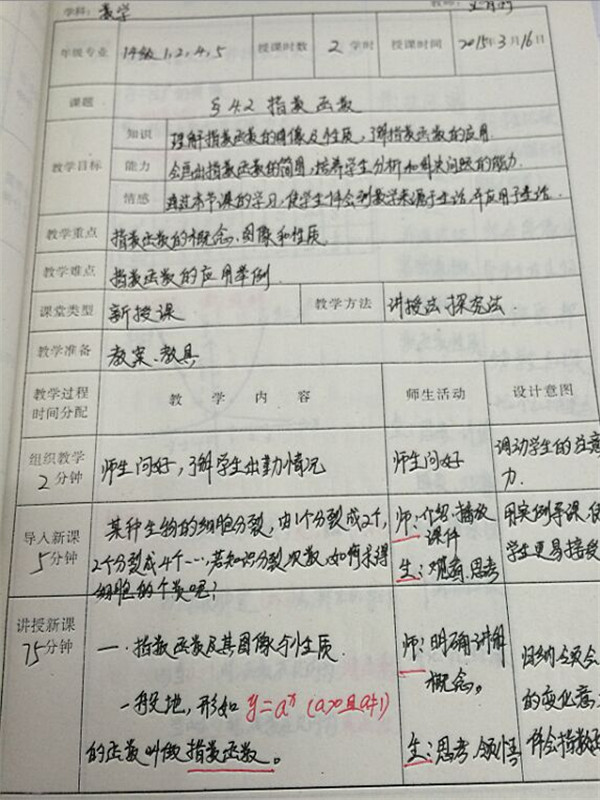 学科：数学
年级专业 14级1,2,4,5 授课时数 2学时 授课时间 2015年3月16日
课题 §4.2 指数函数
教学目标 知识 理解指数函数的图像及性质，了解指数函数的应用.
能力 会画出指数函数的简图，培养学生分析和解决问题的能力.
情感 通过本节课的学习，使学生体会到数学来源于生活，并应用于生活.
教学重点 指数函数的概念、图像和性质
教学难点 指数函数的应用举例.
课堂类型 新授课 教学方法 讲授法、探究法.
教学准备 教案、教具
教学过程 教 学 内 容 师生活动 设计意图
时间分配
组织教学 师生问好，了解学生出勤情况 师生问好 调动学生的注意
2分钟 力.
导入新课 某种生物的细胞分裂，由1个分裂成2个， 师：介绍、播放 用实例导课，
5分钟 2个分裂成4个…，若知识分裂次数，如何求得 课件 学生更易接受
细胞的个数呢？ 生：观看、思考
讲授新课
75分钟 一.指数函数及其图像与性质. 师：明确讲解 归纳
概念。 的变化
一般地，形如 y=aˣ (a>0且a≠1) 体会指数
的函数叫做指数函数。 生：思考、领悟